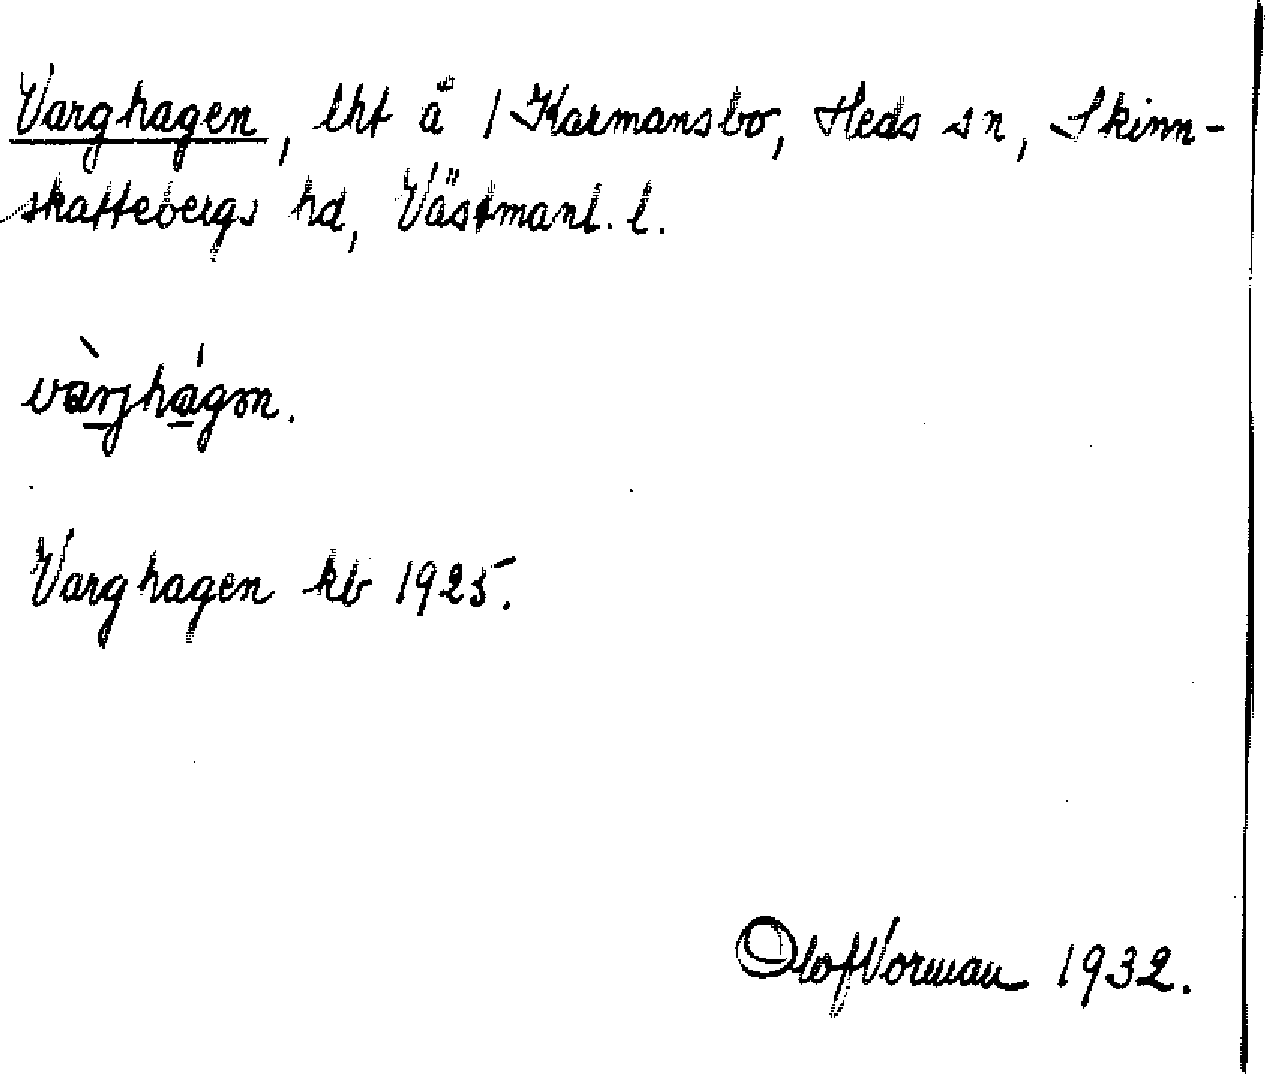 Varghagen, lht å 1 Karmansbo, Heds sn, Skinn-
skattebergs hd, Västmanl. l.
vàrjhágən.
Varghagen kb 1925.
Olof Vorman 1932.